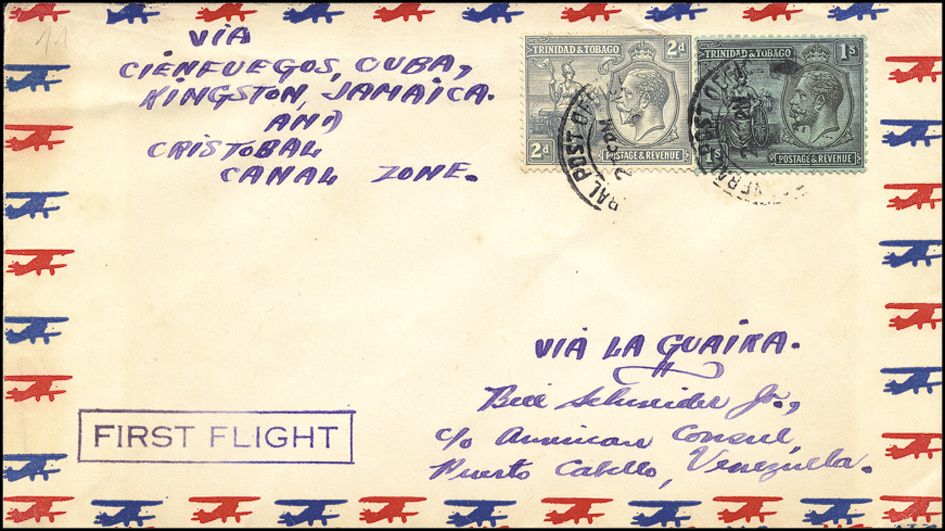 1.1
VIA
CIENFUEGOS, CUBA,
KINGSTON, JAMAICA.
AND
CRISTOBAL
CANAL ZONE.
TRINIDAD & TOBAGO 2d
2d POSTAGE & REVENUE
TRINIDAD & TOBAGO 1s
1s POSTAGE & REVENUE
RAL POST OFF
PM
GENERAL POST OFF
PM
VIA LA GUAIRA.
Bill Schneider Jr.,
c/o American Consul,
Puerto Cabello, Venezuela.
FIRST FLIGHT